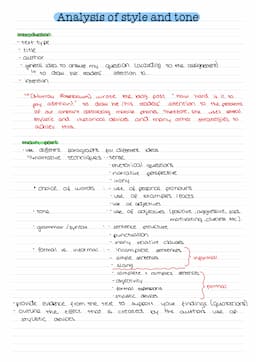 Analysis of style and tone
Introduction:
- text type
- title
- author
- general idea to answer my question (according to the assignment)
" to draw the readers' attention to...
- intention
wrote the blog post " how hard is it to
pay attention?" to draw the/his readers' attention to the problems
of our constant distracting mobile phones. Therefore, she uses several
stylistic and rhetorical devices and many other strategies to
achieve this.
- use different paragraphs for different ideas
* narrative techniques - tense
- rhetorical questions
- narrative perspective
- irony
* choice of words - use of personal pronouns
- use of examples / facts
- use of adjectives
* tone - use of adjectives (positive, aggressive, sad,
motivating, clueless etc.)
* grammar / syntax - sentence structure
- punctuation
- many relative clauses
* formal vs. informal - incomplete sentences
- simple sentences
- slang
informal
- complete + complex sentences
- objectivity
- formal expressions
- linguistic devices
formal
- provide evidence from the text to support your findings (quotations)
- outline the effect that is created by the author's use of
stylistic devices